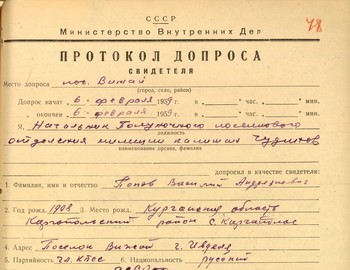 СССР
Министерство Внутренних Дел
78
ПРОТОКОЛ ДОПРОСА
СВИДЕТЕЛЯ
Место допроса пос. Вижай
(город, село, район)
Допрос начат „6“ февраля 1959 г. в „ “ час. мин.
окончен „6“ февраля 1959 г. в „ “ час. мин.
Я, Начальник Полуночного поселкового
должность
отделения милиции капитан Чудинов
наименование органа, фамилия
допросил в качестве свидетеля:
1. Фамилия, имя и отчество Попов Василий Андреевич
2. Год рожд. 1908 3. Место рожд. Курганская область
Каргапольский район с. Каргаполье
4. Адрес Поселок Вижай г. Ивдель
5. Партийность чл. КПСС 6. Национальность русский